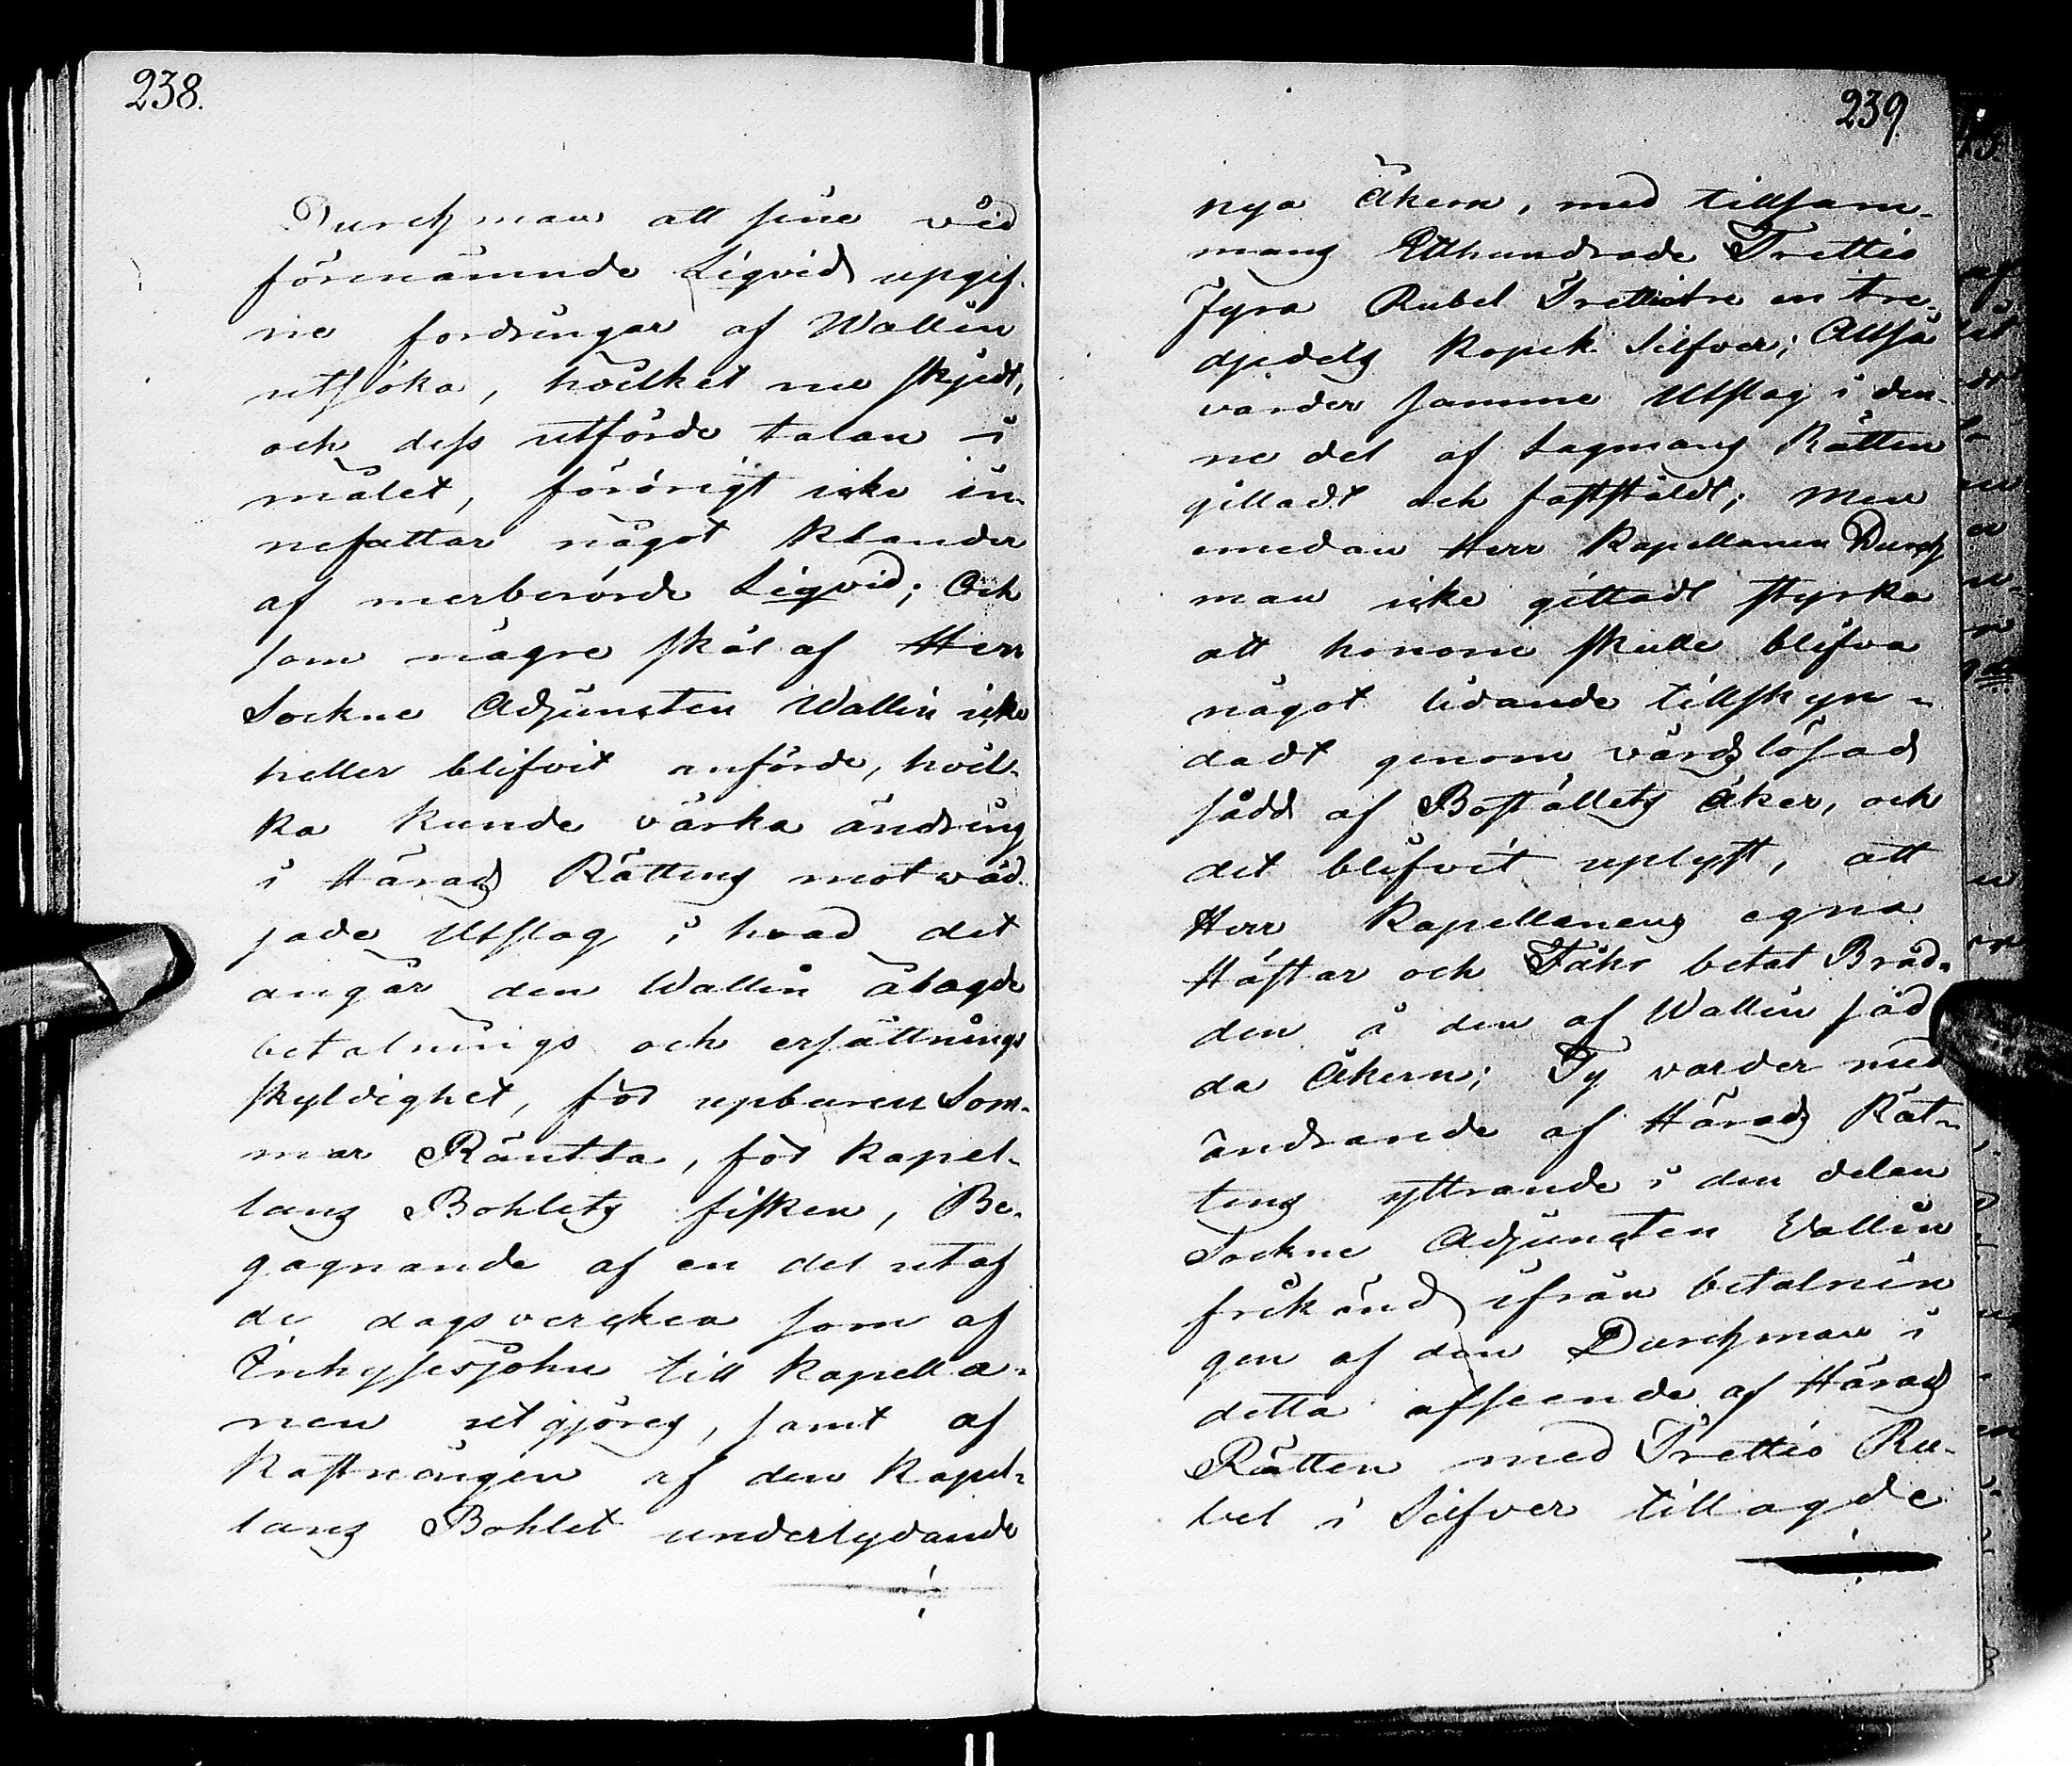 238.
Durchman att sine vid
förenämnde Liqvid upgif-
ne fordringar af Wallin
utsöka, hvilket nu skjedt,
och dess utförde talan i
målet, föröfrigt icke in-
nefattar något klander
af merberörde Liqvid; Och
som någre skäl af Herr
Sockne Adjuncten Wallin icke
heller blifvit anförde, hvil-
ka kunde värka ändring
i Härads Rättens motväd-
jade Utslag i hvad det
angår den Wallin ålagde
betalnings och ersättnings
skyldighet, för upburen Som-
mar Räntta, för Kapel-
lans Bohlets fisken, Be-
gagnande af en del utaf
de dagsvercken som af
Inhysesjohn till Kapella-
nen utgjöres, samt af
Kastningen af den Kapel-
lans Bohlet underlydande
239.
nya åkern, med tillsam-
mans Etthundrade Trettio
Fyra Rubel Trettiotre en tre-
djedels Kopek Silfver; Altså
varder samme Utslag i den-
ne del af Lagmans Rätten
gilladt och fastställdt; Men
emedan Herr Kapellanen Durch
man icke gittadt styrka
att honom skulle blifva
något lidande tillskyn-
dadt genom vårdslösad
sådd af Boställets åker, och
det blifvit uplyst, att
Herr Kapellanens egna
Hästar och Fäkr betat Bråd-
den å den af Wallin såd
da åkern; Ty varder med
ändrande af Härads Rät-
tens yttrande i den delen
Sockne Adjuncten Vallin
frikänd ifrån betalnin
gen af den Durchman i
detta afseende af Härads
Rätten med Trettio Ru-
bel i Silfver tillagde